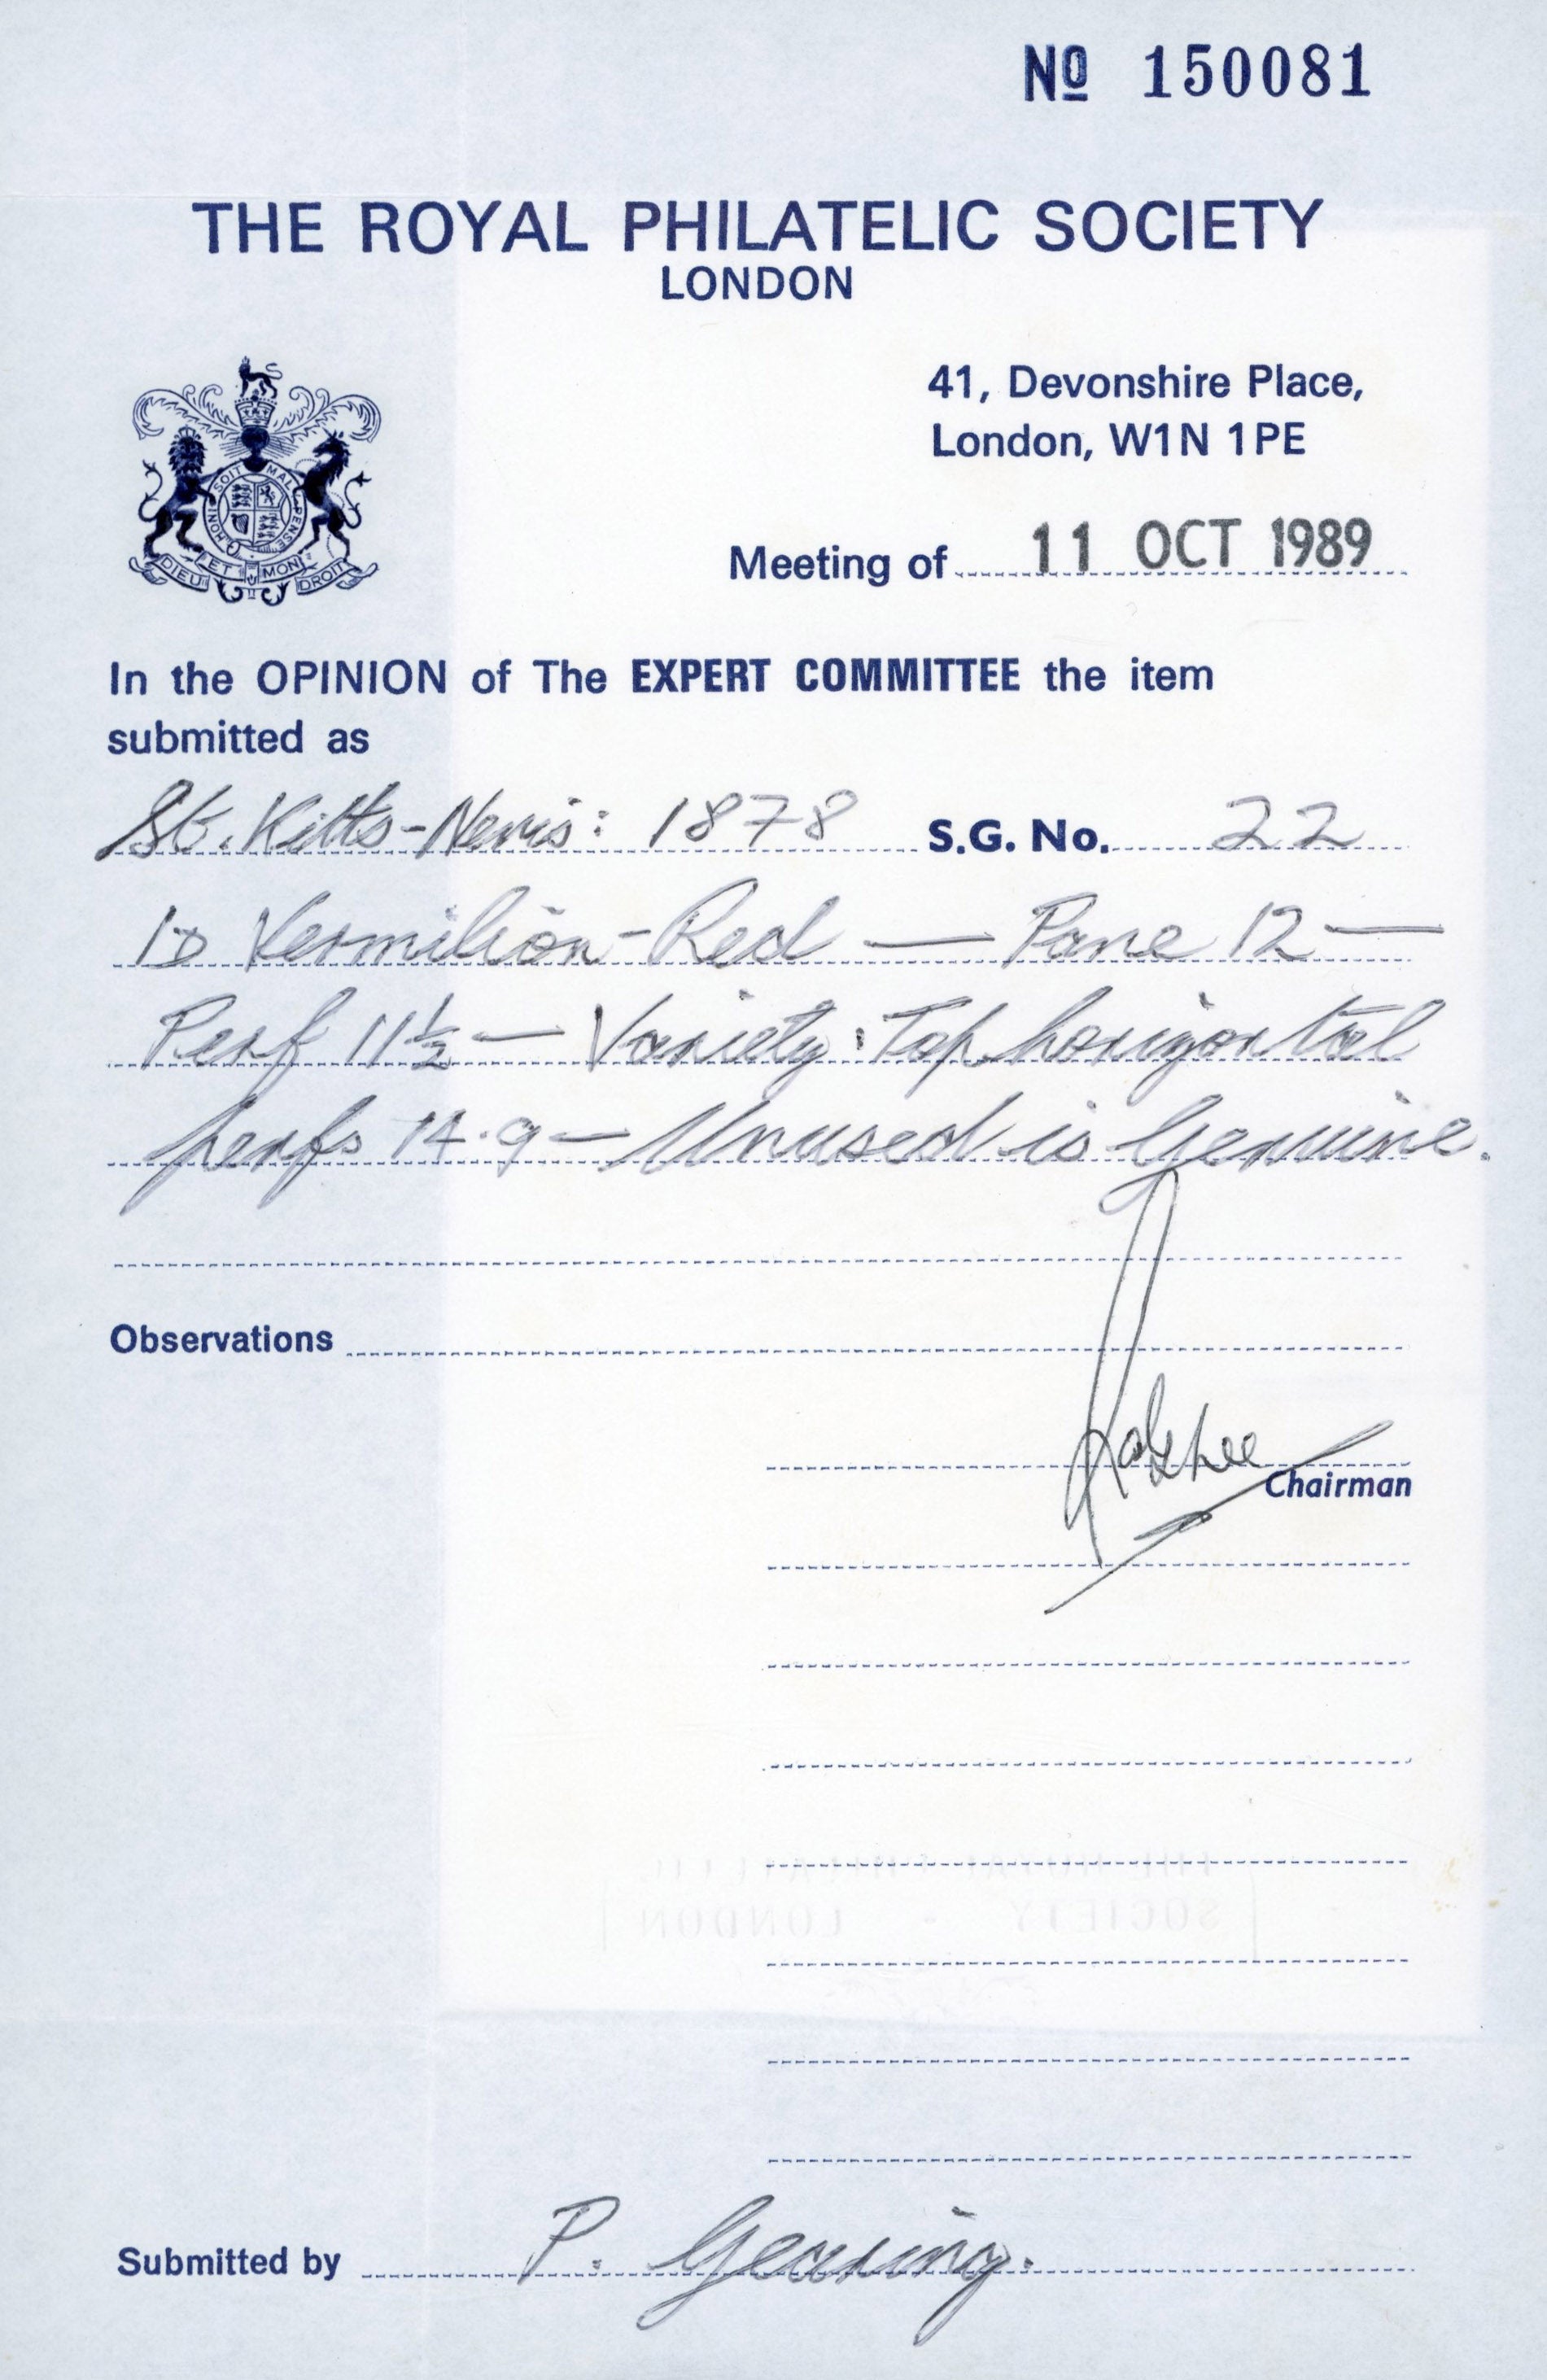 Nº 150081
THE ROYAL PHILATELIC SOCIETY
LONDON
HONI SOIT MAL PENSE
DIEU ET MON DROIT
41, Devonshire Place,
London, W1N 1PE
Meeting of 11 OCT 1989
In the OPINION of The EXPERT COMMITTEE the item
submitted as
St. Kitts-Nevis: 1878 S.G. No. 22
1D Vermilion-Red — Pane 12 —
Perf 11½ — Variety: Top horizontal
perfs 14.9 — Unused is Genuine.
Observations
Chairman
SOCIETY - LONDON
Submitted by P. Gearing.